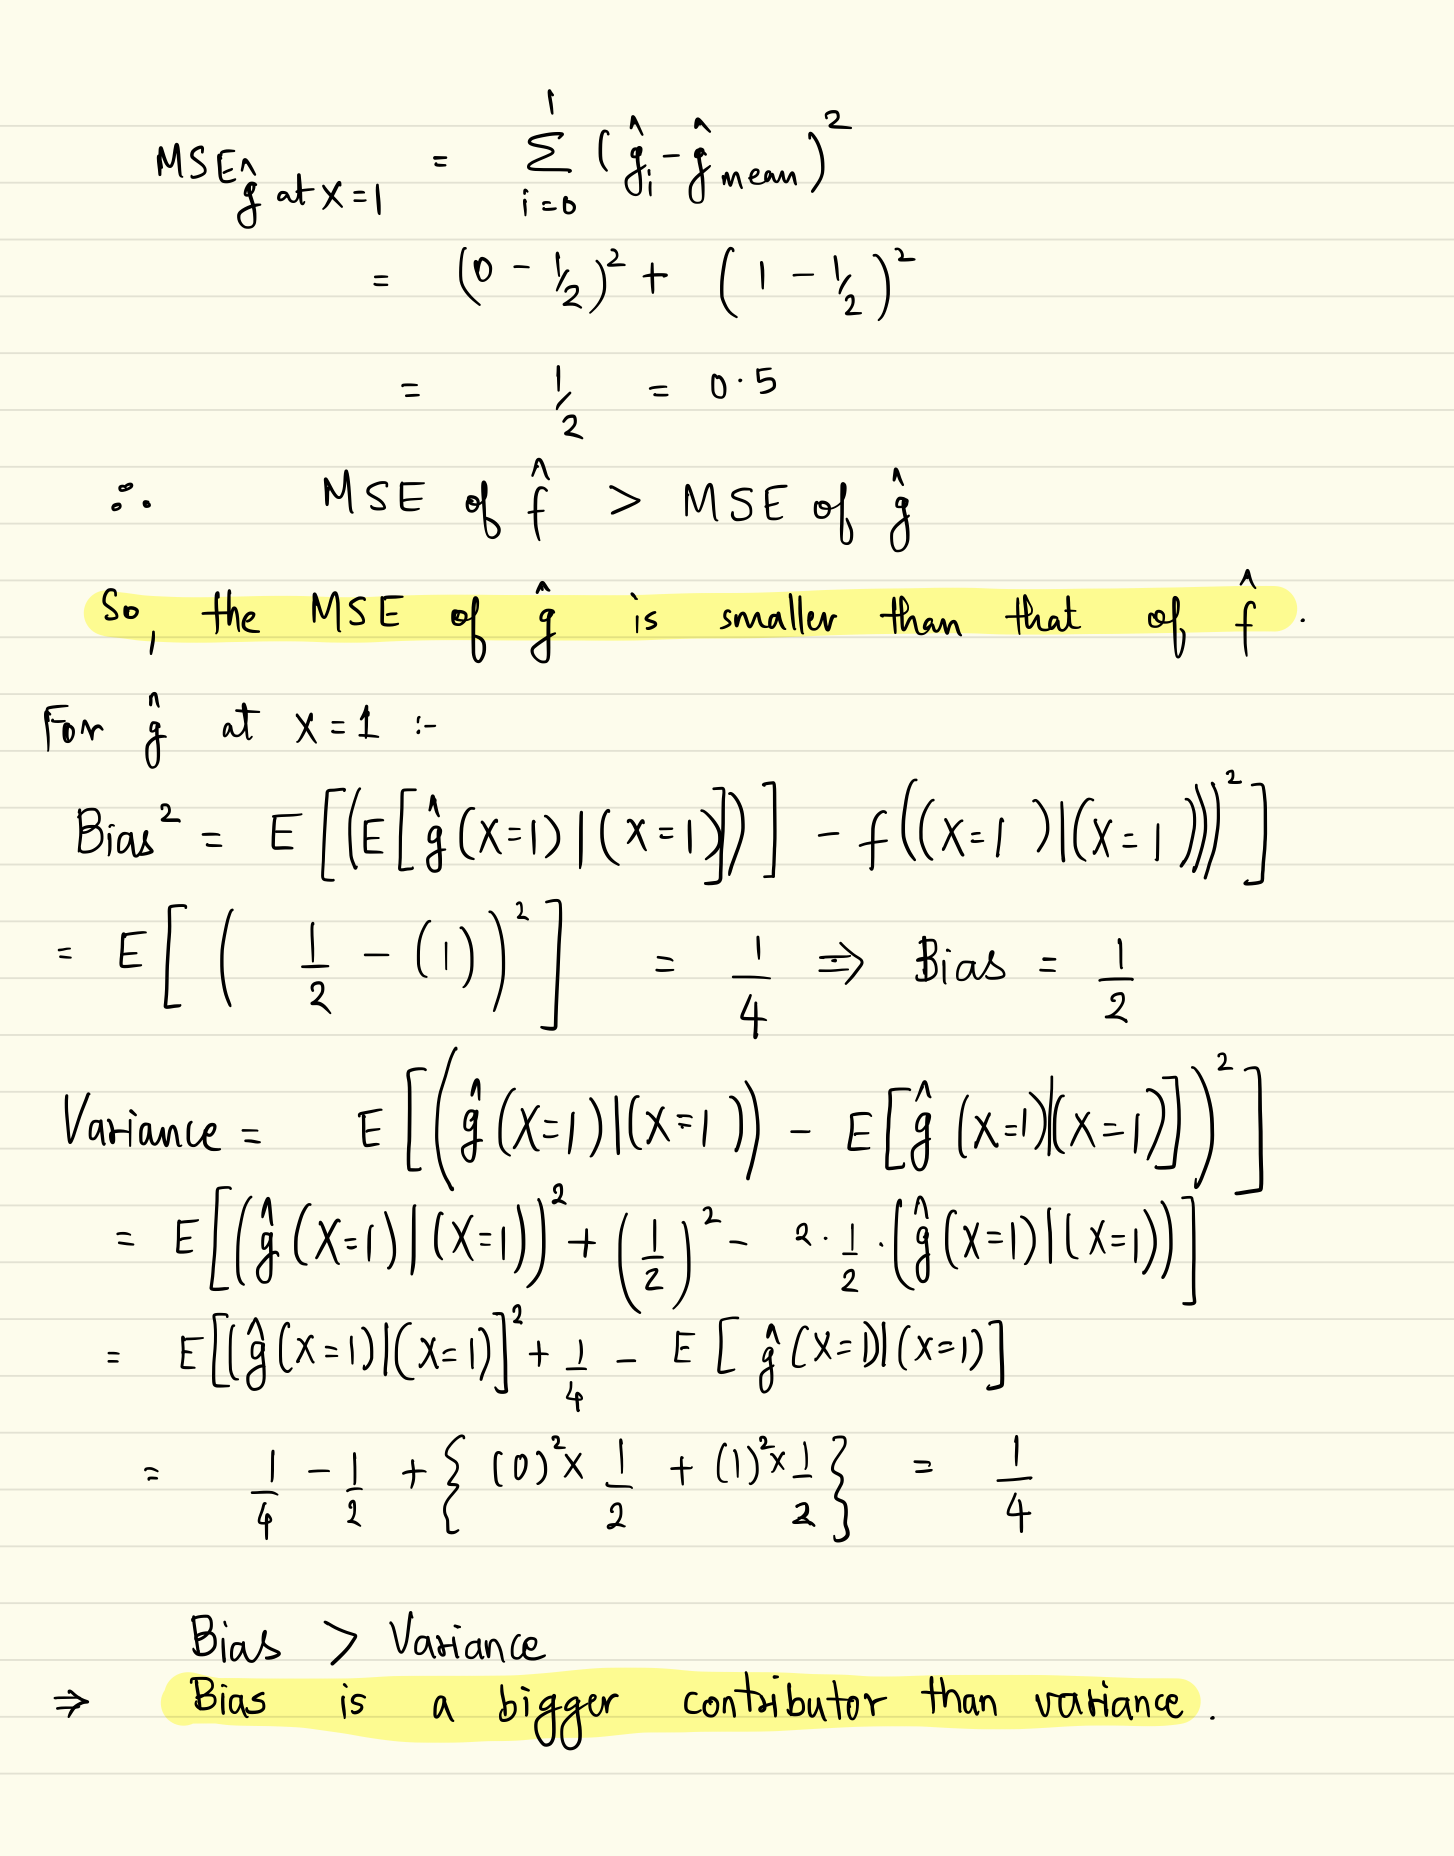 MSE_{ĝ at X=1} = Σ_{i=0}^{1} (ĝ_i - ĝ_mean)²
= (0 - 1/2)² + (1 - 1/2)²
= 1/2 = 0.5
∴ MSE of f̂ > MSE of ĝ
So, the MSE of ĝ is smaller than that of f̂.
For ĝ at X=1 :-
Bias² = E[(E[ĝ(X=1)|(X=1)])] - f((X=1)|(X=1)))²]
= E[(1/2 - (1))²] = 1/4 ⇒ Bias = 1/2
Variance = E[(ĝ(X=1)|(X=1)) - E[ĝ(X=1)|(X=1)])²]
= E[(ĝ(X=1)|(X=1))² + (1/2)² - 2·1/2·(ĝ(X=1)|(X=1))]
= E[(ĝ(X=1)|(X=1)]² + 1/4 - E[ĝ(X=1)|(X=1)]
= 1/4 - 1/2 + {(0)² × 1/2 + (1)² × 1/2} = 1/4
Bias > Variance
⇒ Bias is a bigger contributor than variance.